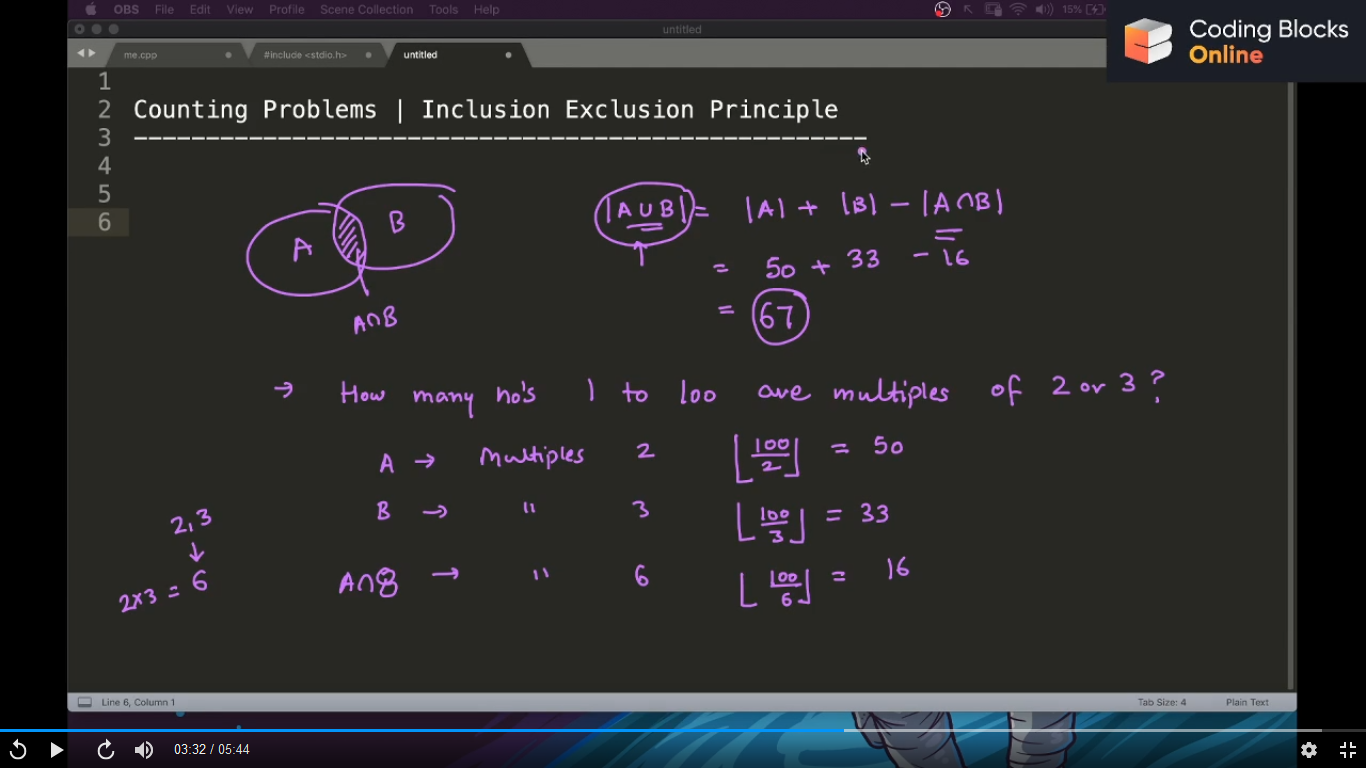 OBS File Edit View Profile Scene Collection Tools Help 15%
untitled
Coding Blocks
Online
me.cpp #include <stdio.h> untitled
1
2 Counting Problems | Inclusion Exclusion Principle
3 ---------------------------------------------------
4
5
6
A B
A∩B
|A ∪ B| = |A| + |B| − |A∩B|
= 50 + 33 − 16
= 67
→ How many no's 1 to 100 are multiples of 2 or 3?
A → Multiples 2 ⌊100/2⌋ = 50
B → " 3 ⌊100/3⌋ = 33
A∩B → " 6 ⌊100/6⌋ = 16
2,3
↓
2×3 = 6
Line 6, Column 1 Tab Size: 4 Plain Text
03:32 / 05:44